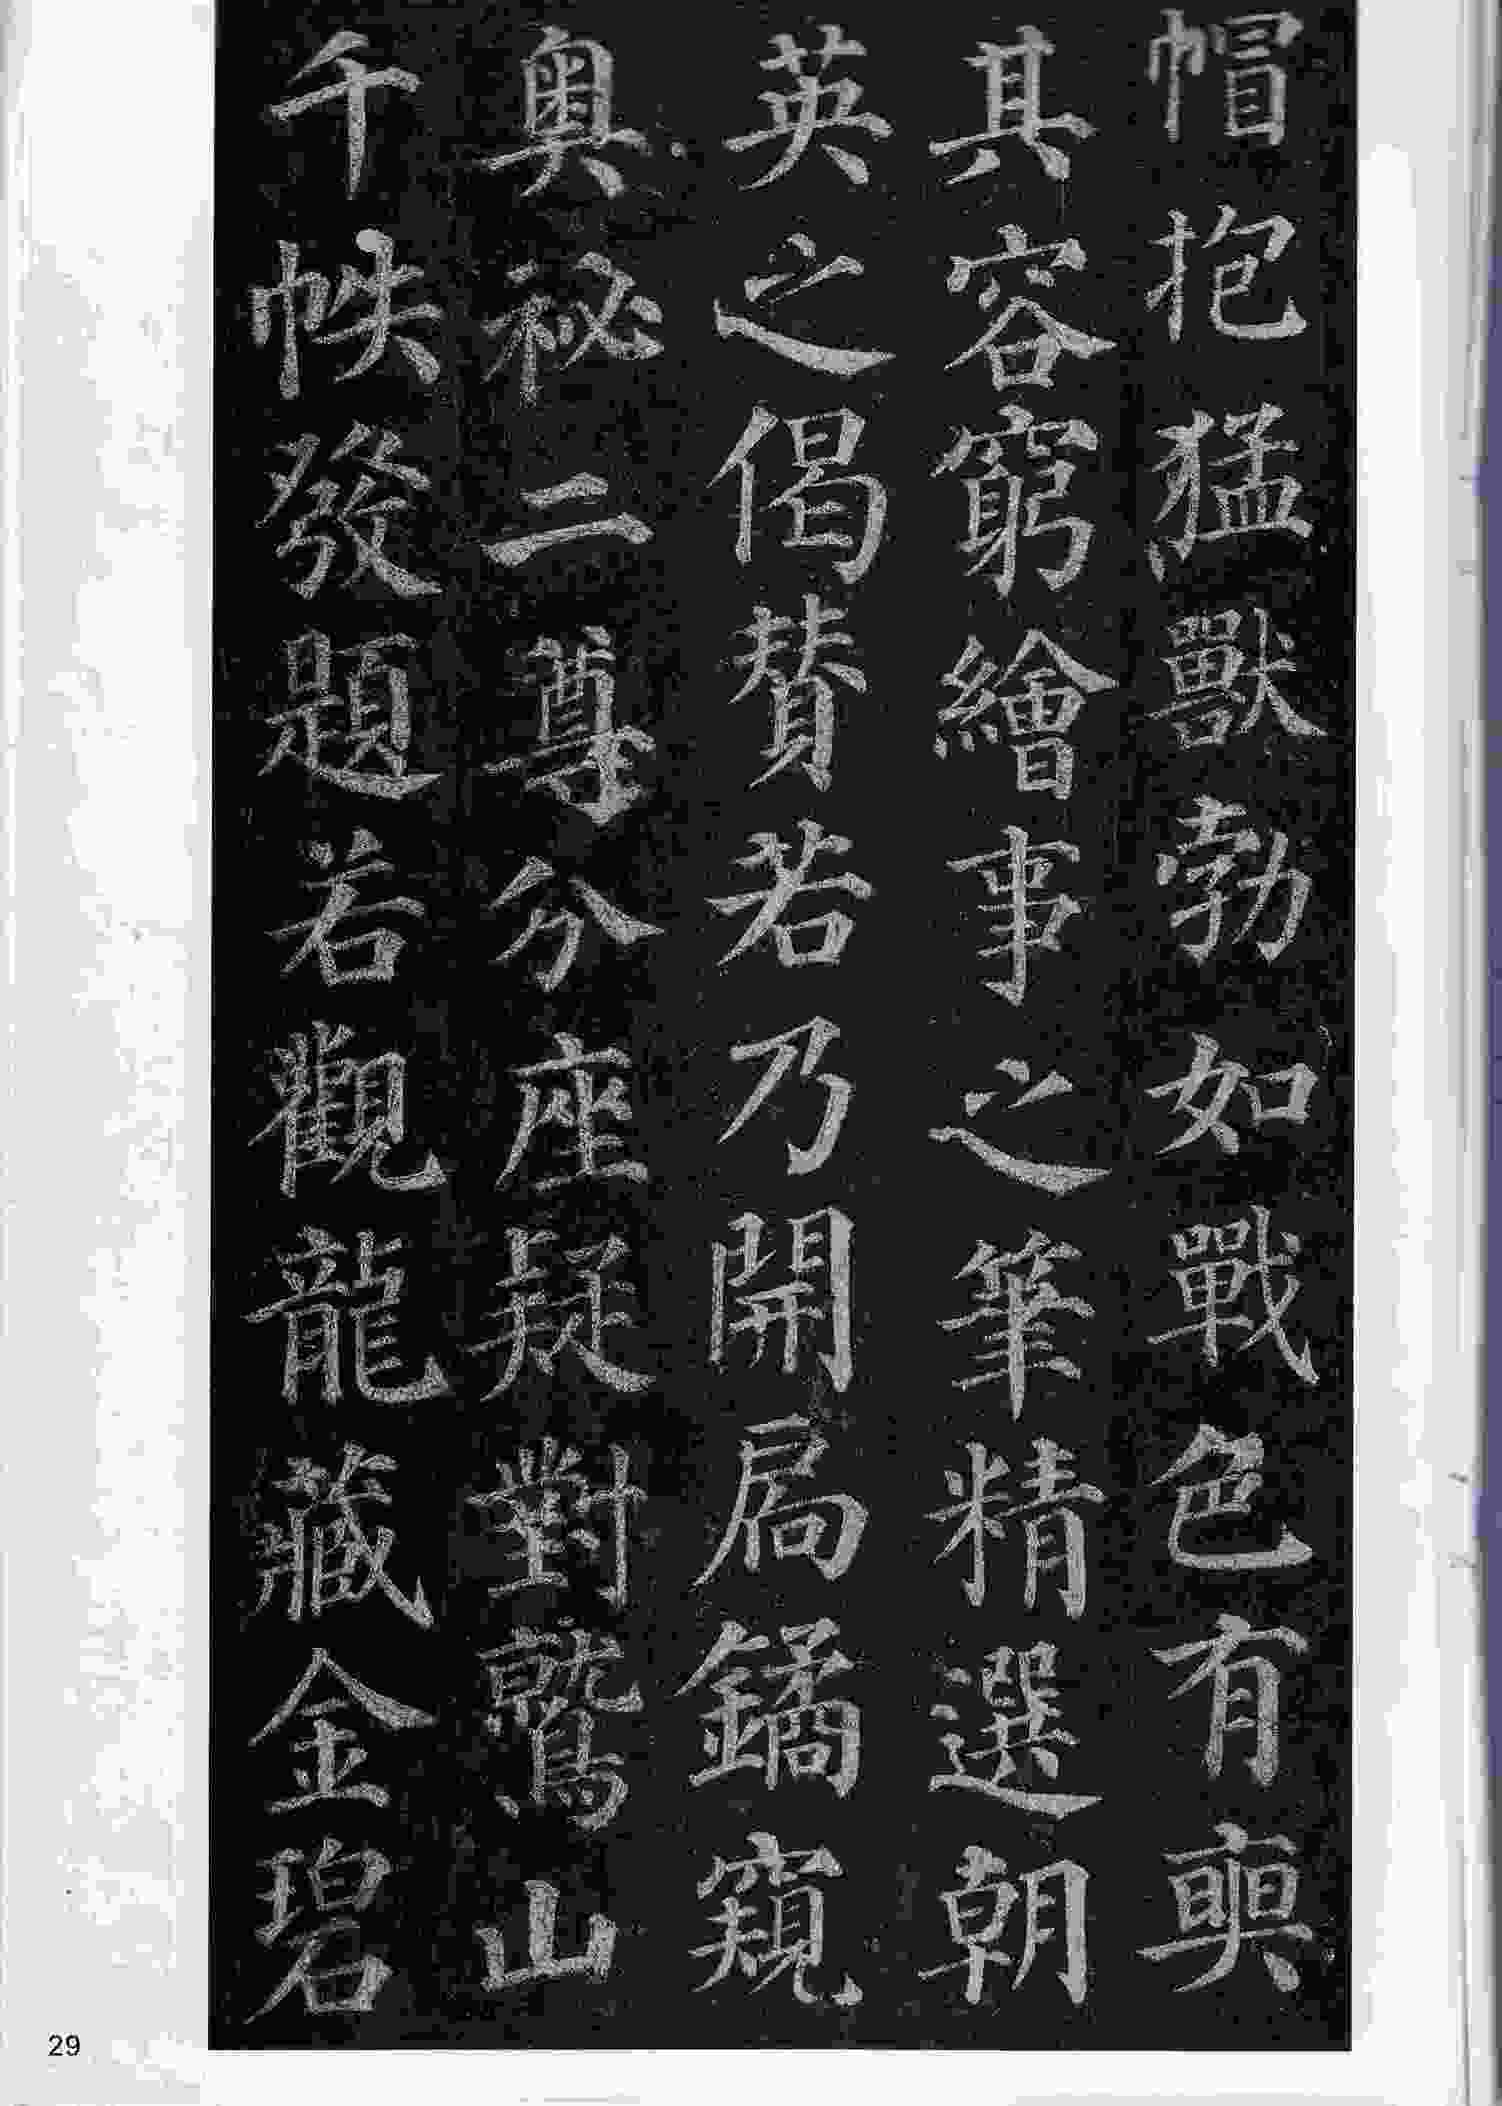 帽抱猛獸勃如戰色有奭
其容窮繪事之筆精選朝
英之偈贊若乃開扃鐍窺
奧祕二尊分座疑對鷲山
千帙發題若觀龍藏金碧
29